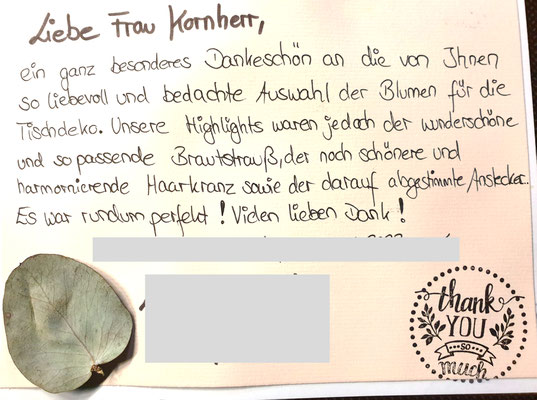 Liebe Frau Kornherr,
ein ganz besonderes Dankeschön an die von Ihnen
so liebevoll und bedachte Auswahl der Blumen für die
Tischdeko. Unsere Highlights waren jedoch der wunderschöne
und so passende Brautstrauß, der noch schönere und
harmornierende Haarkranz sowie der darauf abgestimmte Anstecker.
Es war rundum perfekt! Vielen lieben Dank!
thank
YOU
SO
much